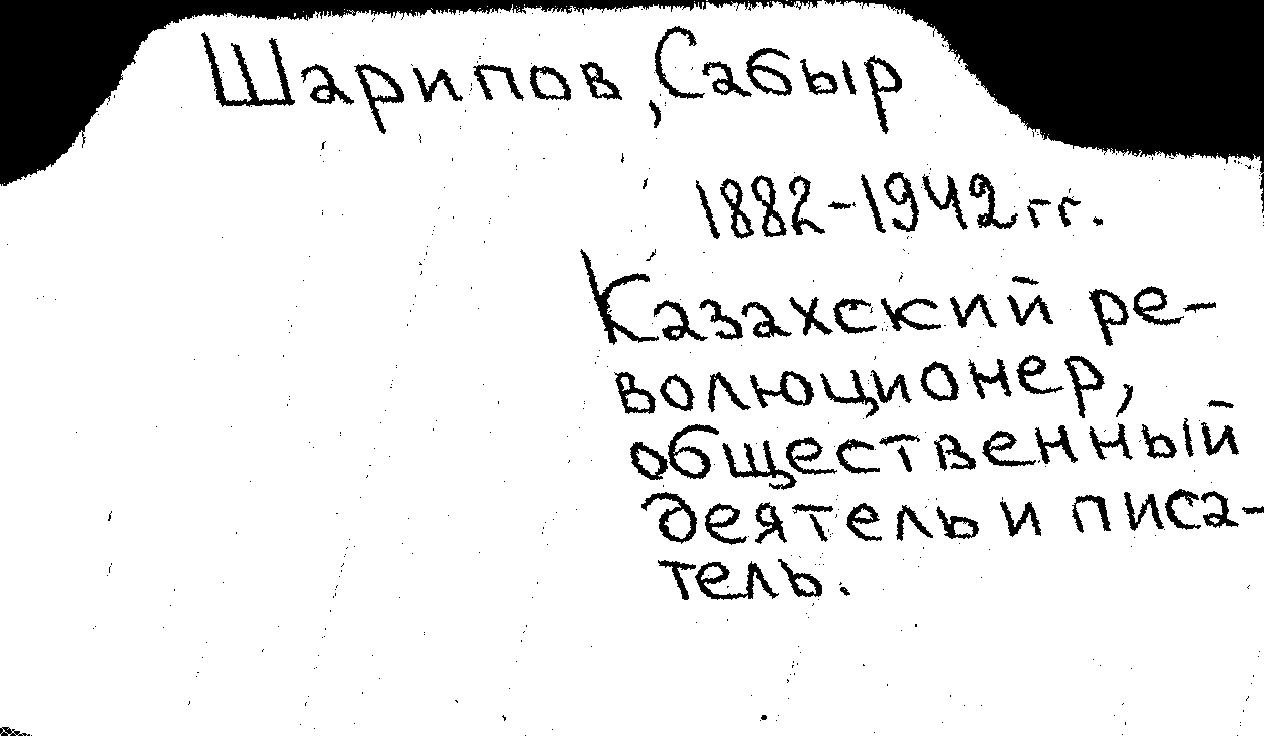 Шарипов, Сабыр
1882-1942 гг.
Казахский ре-
волюционер,
общественный
деятель и писа-
тель.